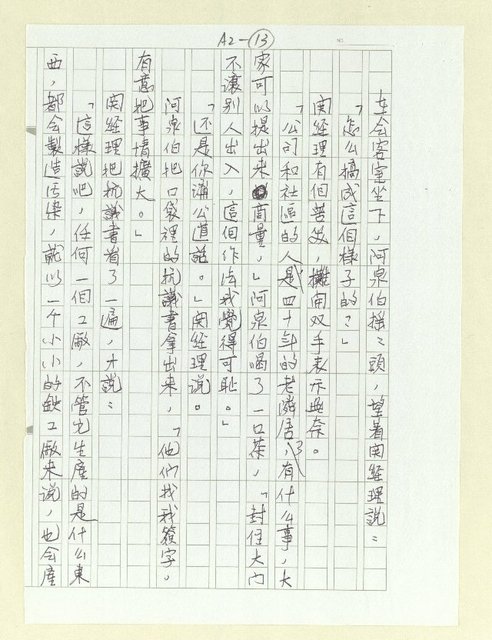 A2-⑬
NO.
在会客室坐下，阿泉伯摇摇頭，望着関經理說：
「怎么搞成這個樣子的？」
関經理有個苦笑，攤開双手表示無奈。
「公司和社區的人是四十年的老隣居了，有什么事，大
家可以提出來商量，」阿泉伯喝了一口茶，「封住大门
不讓别人出入，這個作法我覺得可恥。」
「还是你講公道話。」関經理說。
阿泉伯把口袋裡的抗議書拿出來，「他們找我簽字，
有意把事情擴大。」
関經理把抗議書看了一遍，才說：
「這樣說吧，任何一個工廠，不管它生產的是什么東
西，都会製造污染，就以一个小小的鉄工廠來說，也会產